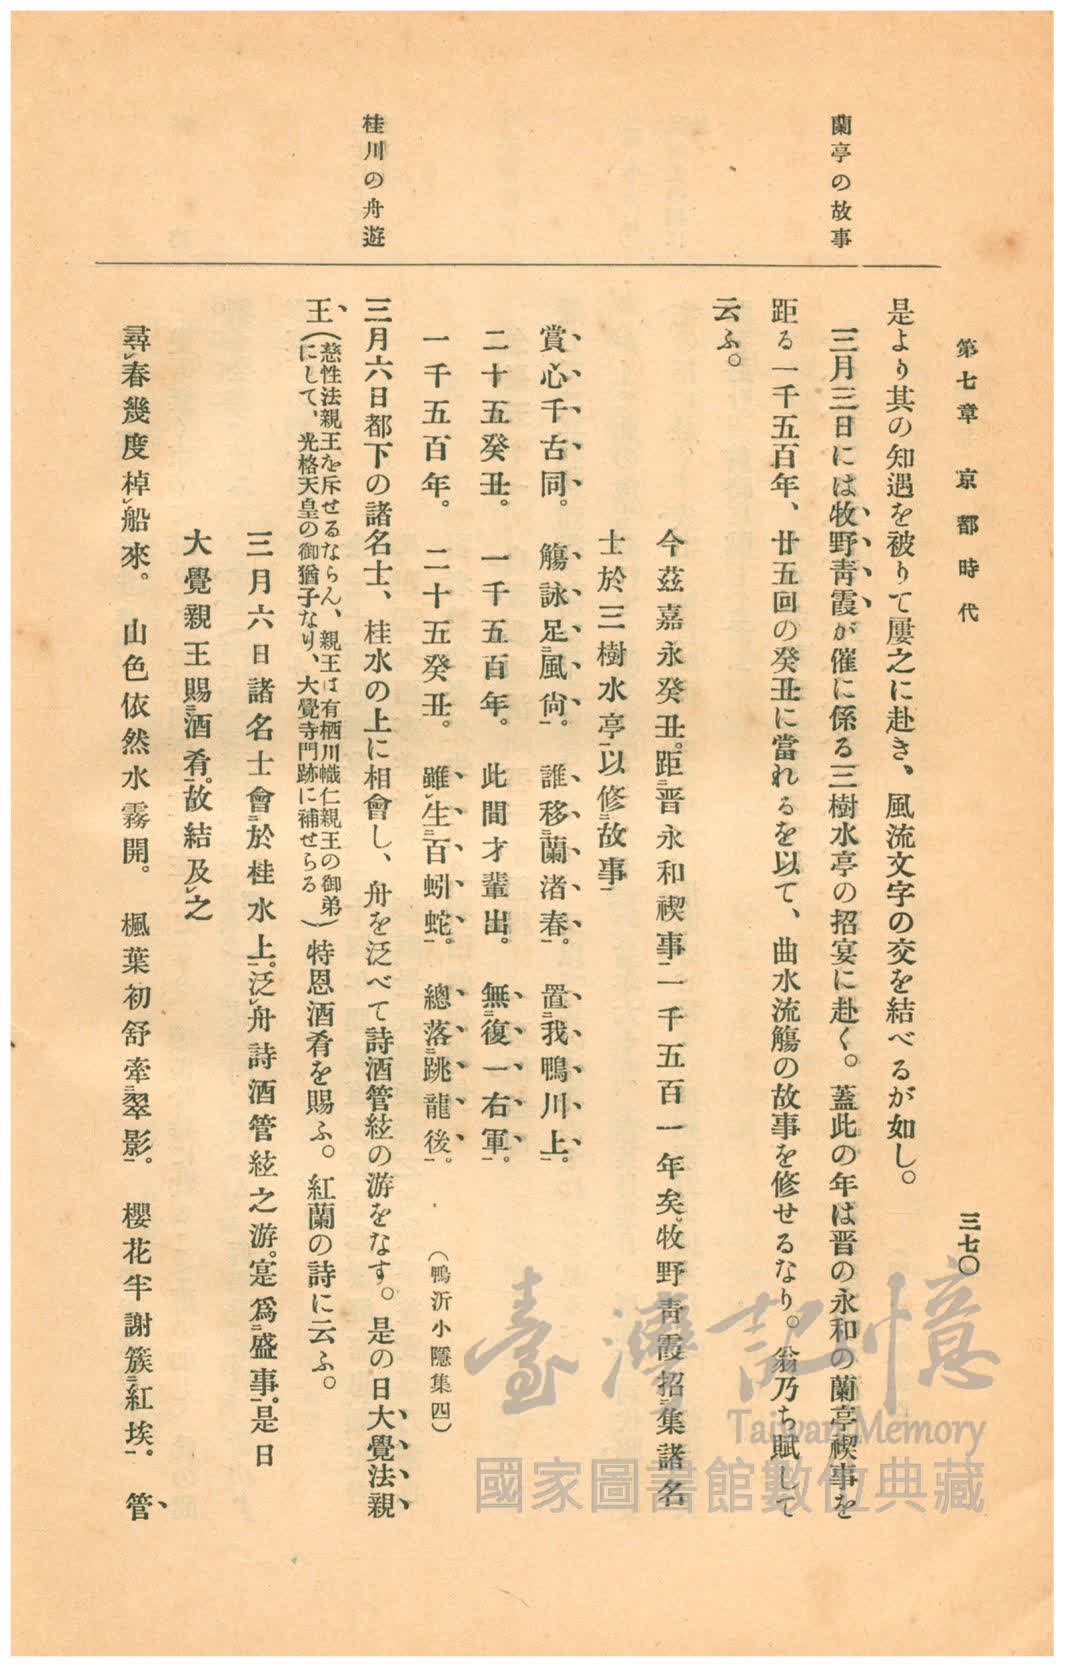 第七章　京都時代　三七〇
蘭亭の故事
桂川の舟遊
是より其の知遇を被りて屢之に赴き、風流文字の交を結べるが如し。
三月三日には牧野靑霞が催に係る三樹水亭の招宴に赴く。蓋此の年は晋の永和の蘭亭禊事を
距る一千五百年、廿五回の癸丑に當れるを以て、曲水流觴の故事を修せるなり。翁乃ち賦して
云ふ。
今茲嘉永癸丑。距㆓晋永和禊事㆒一千五百一年矣。牧野靑霞招㆓集諸名
士於三樹水亭㆒以修㆓故事㆒
賞心千古同。　觴詠足㆓風尙㆒。　誰移㆓蘭渚春㆒。　置㆓我鴨川上㆒。
二十五癸丑。　一千五百年。　此間才輩出。　無㆓復一右軍㆒。
一千五百年。　二十五癸丑。　雖㆑生㆓百蚓蛇㆒。　總落㆓跳龍後㆒。　（鴨沂小隱集四）
三月六日都下の諸名士、桂水の上に相會し、舟を泛べて詩酒管絃の游をなす。是の日大覺法親
王、（慈性法親王を斥せるならん、親王は有栖川幟仁親王の御弟
にして、光格天皇の御猶子なり、大覺寺門跡に補せらる）特恩酒肴を賜ふ。紅蘭の詩に云ふ。
三月六日諸名士會㆓於桂水上㆒。泛㆑舟詩酒管絃之游。寔爲㆓盛事㆒。是日
大覺親王賜㆓酒肴㆒。故結及㆑之
尋㆑春幾度棹㆑船來。　山色依然水霧開。　楓葉初舒牽㆓翠影㆒。　櫻花半謝簇㆓紅埃㆒。　管
臺灣記憶
Taiwan Memory
國家圖書館數位典藏